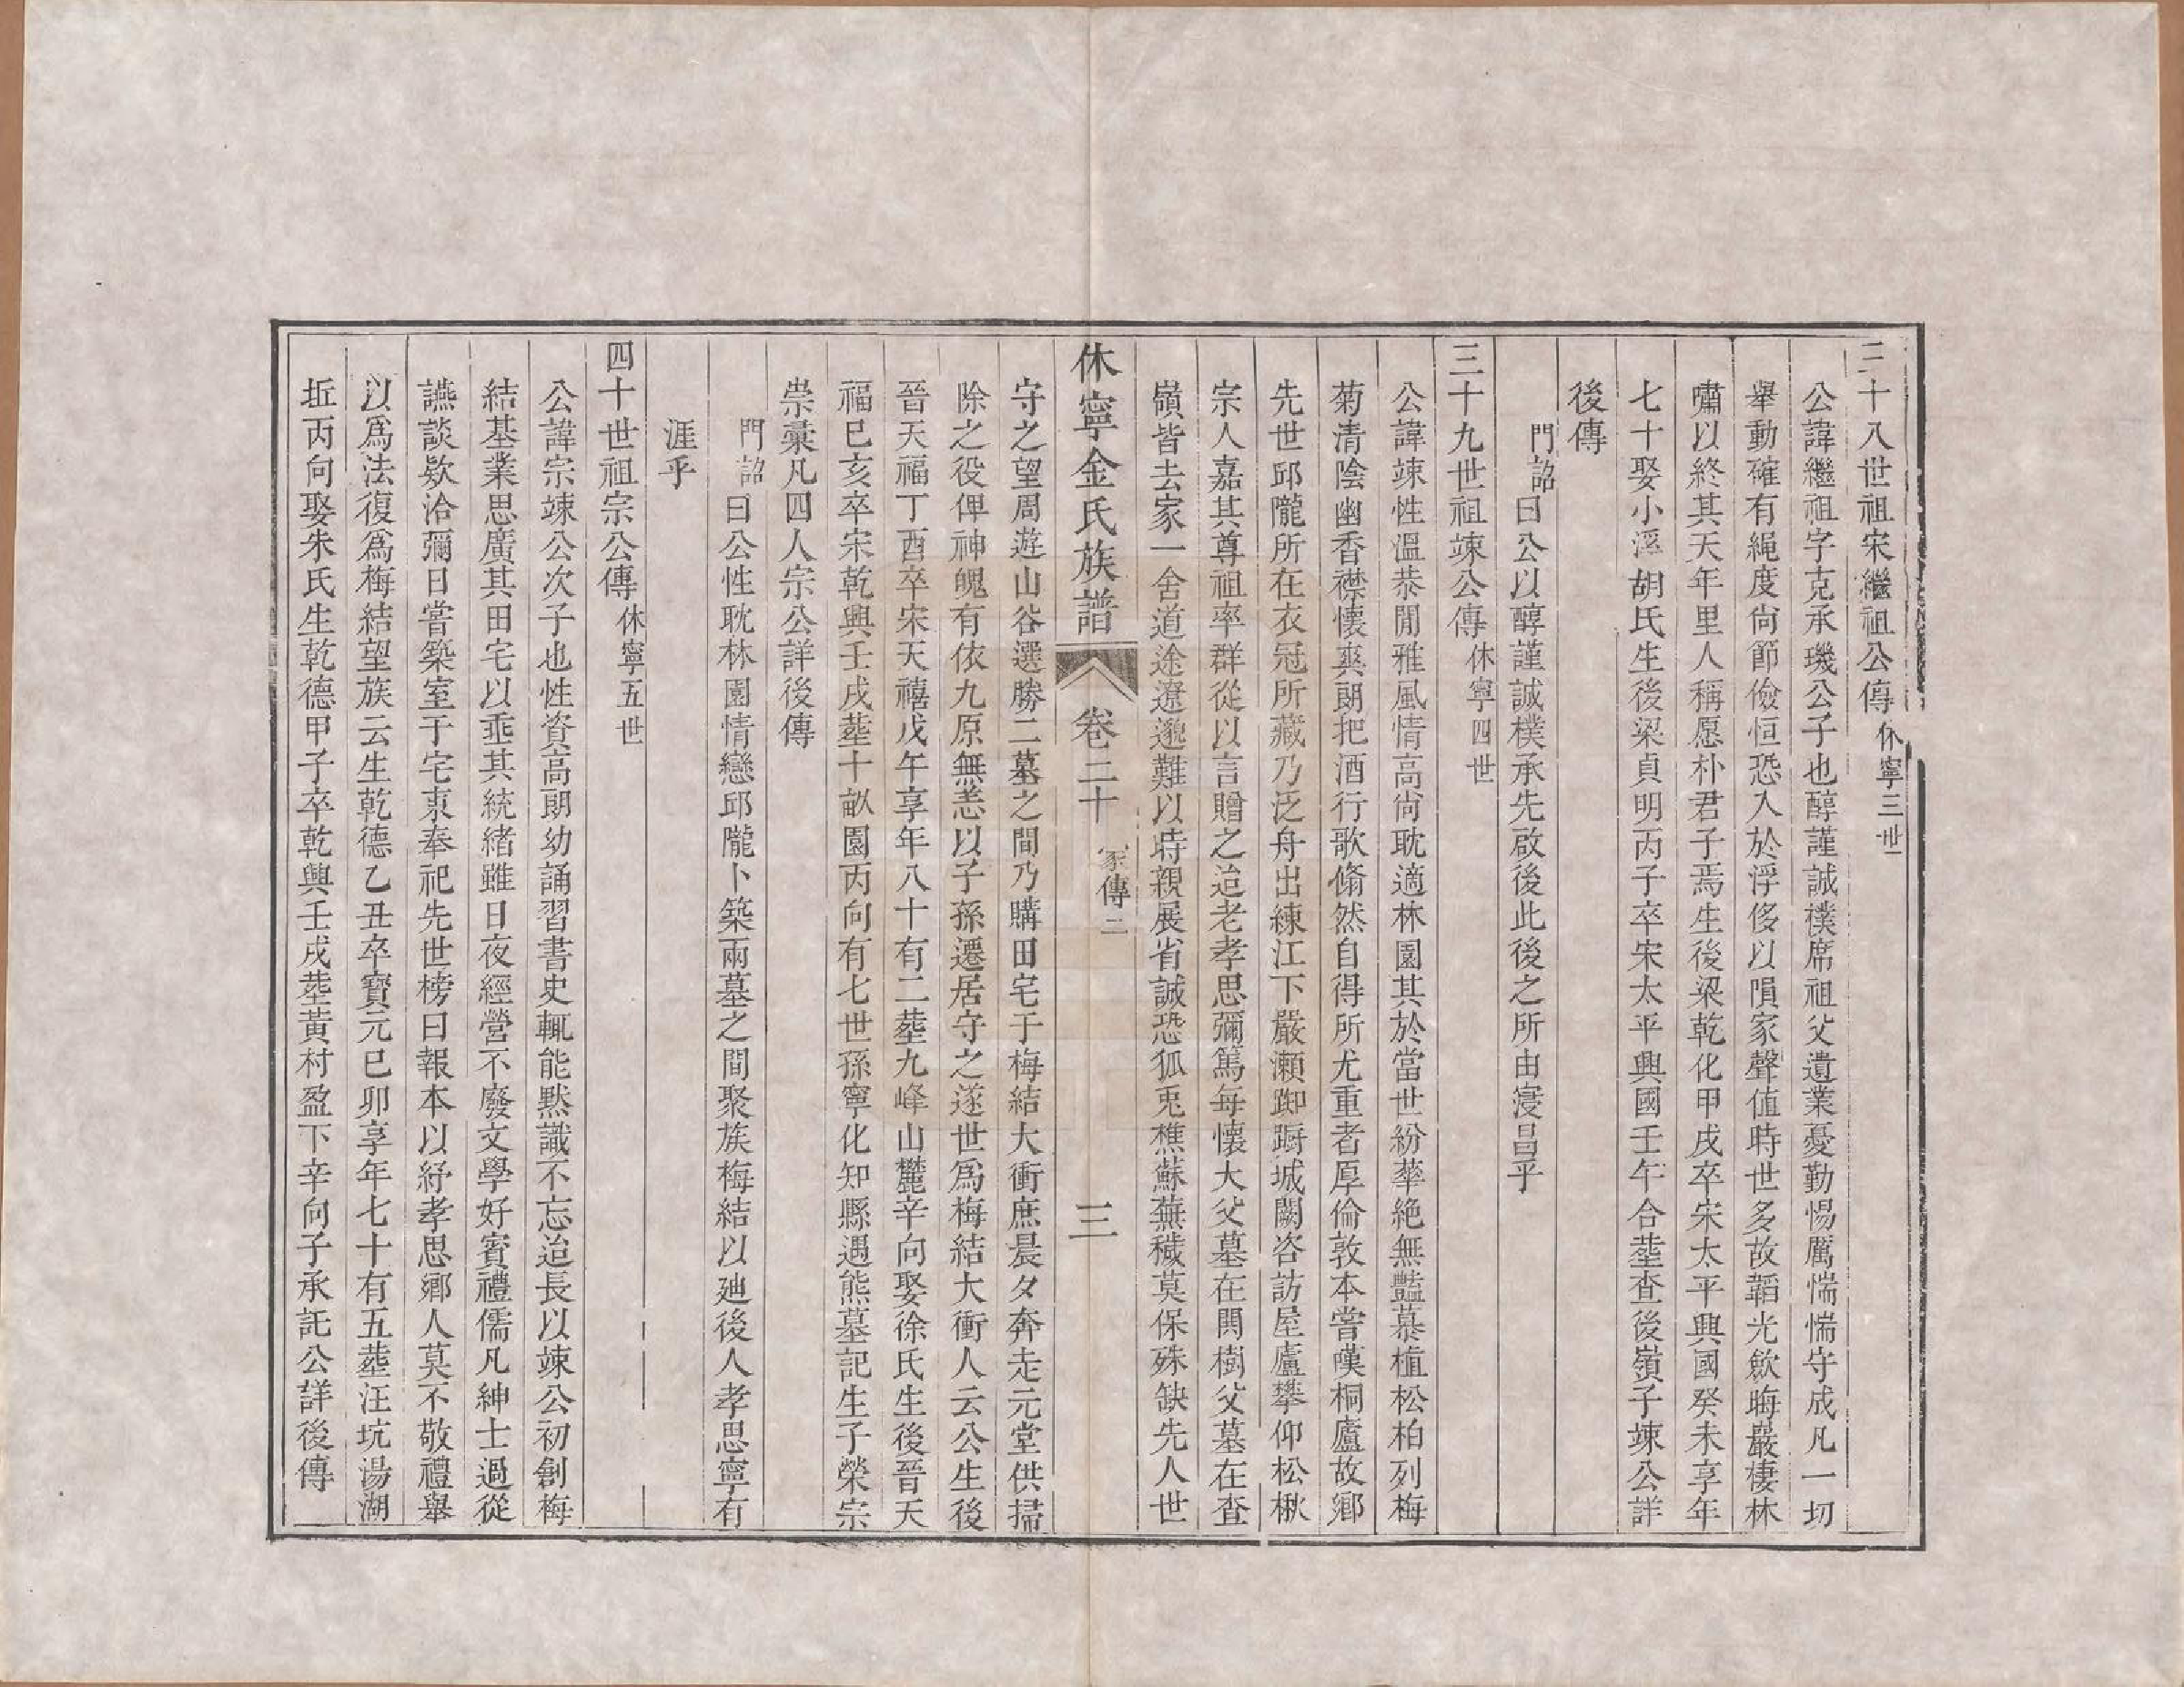 三十八世祖宋繼祖公傳休寧三世
公諱繼祖字克承璣公子也醇謹誠樸席祖父遺業憂勤惕厲惴惴守成凡一切
舉動確有繩度尙節儉恒恐入於浮侈以隕家聲值時世多故韜光歛晦巖棲林
嘯以終其天年里人稱愿朴君子焉生後梁乾化甲戌卒宋太平興國癸未享年
七十娶小溪胡氏生後梁貞明丙子卒宋太平興國壬午合塟查後嶺子竦公詳
後傳
門詔曰公以醇謹誠樸承先啟後此後之所由寖昌乎
三十九世祖竦公傳休寧四世
公諱竦性溫恭閒雅風情高尙耽適林園其於當世紛華絶無豔慕植松柏列梅
菊清陰幽香襟懷爽朗把酒行歌翛然自得所尤重者厚倫敦本嘗嘆桐廬故鄉
先世邱隴所在衣冠所藏乃泛舟出練江下嚴瀬踟蹰城闕咨訪屋廬攀仰松楸
宗人嘉其尊祖率群從以言贈之迨老孝思彌篤每懷大父墓在閎樹父墓在查
嶺皆去家一舍道途遼邈難以時親展省誠恐狐兎樵蘇蕪穢莫保殊缺先人世
休寧金氏族譜 卷二十 家傳二 三
守之望周遊山谷選勝二墓之間乃購田宅于梅結大衝庶晨夕奔走元堂供掃
除之役俾神魄有依九原無恙以子孫遷居守之遂世爲梅結大衝人云公生後
晉天福丁酉卒宋天禧戊午享年八十有二塟九峰山麓辛向娶徐氏生後晉天
福已亥卒宋乾興壬戌塟十畝園丙向有七世孫寧化知縣遇熊墓記生子榮宗
崇稾凡四人宗公詳後傳
門詔曰公性耽林園情戀邱隴卜築兩墓之間聚族梅結以廸後人孝思寧有
涯乎
四十世祖宗公傳休寧五世
公諱宗竦公次子也性資高朗幼誦習書史輒能黙識不忘迨長以竦公初創梅
結基業思廣其田宅以垂其統緒雖日夜經營不廢文學好賓禮儒凡紳士過從
讌談欵洽彌日嘗築室于宅東奉祀先世榜曰報本以紓孝思鄉人莫不敬禮舉
以爲法復爲梅結望族云生乾德乙丑卒寶元已卯享年七十有五塟汪坑湯湖
坵丙向娶朱氏生乾德甲子卒乾興壬戌塟黃村盈下辛向子承託公詳後傳